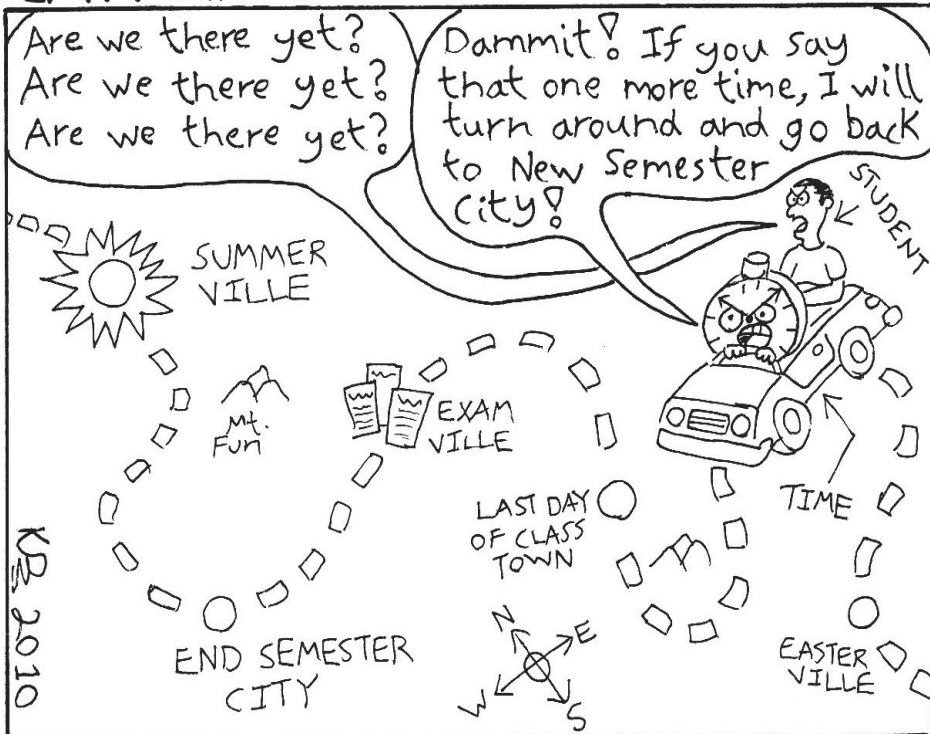 Are we there yet?
Are we there yet?
Are we there yet?
Dammit! If you say
that one more time, I will
turn around and go back
to New Semester
City!
STUDENT
SUMMER
VILLE
Mt.
Fun
EXAM
VILLE
TIME
LAST DAY
OF CLASS
TOWN
EASTER
VILLE
END SEMESTER
CITY
N
E
W
S
2010